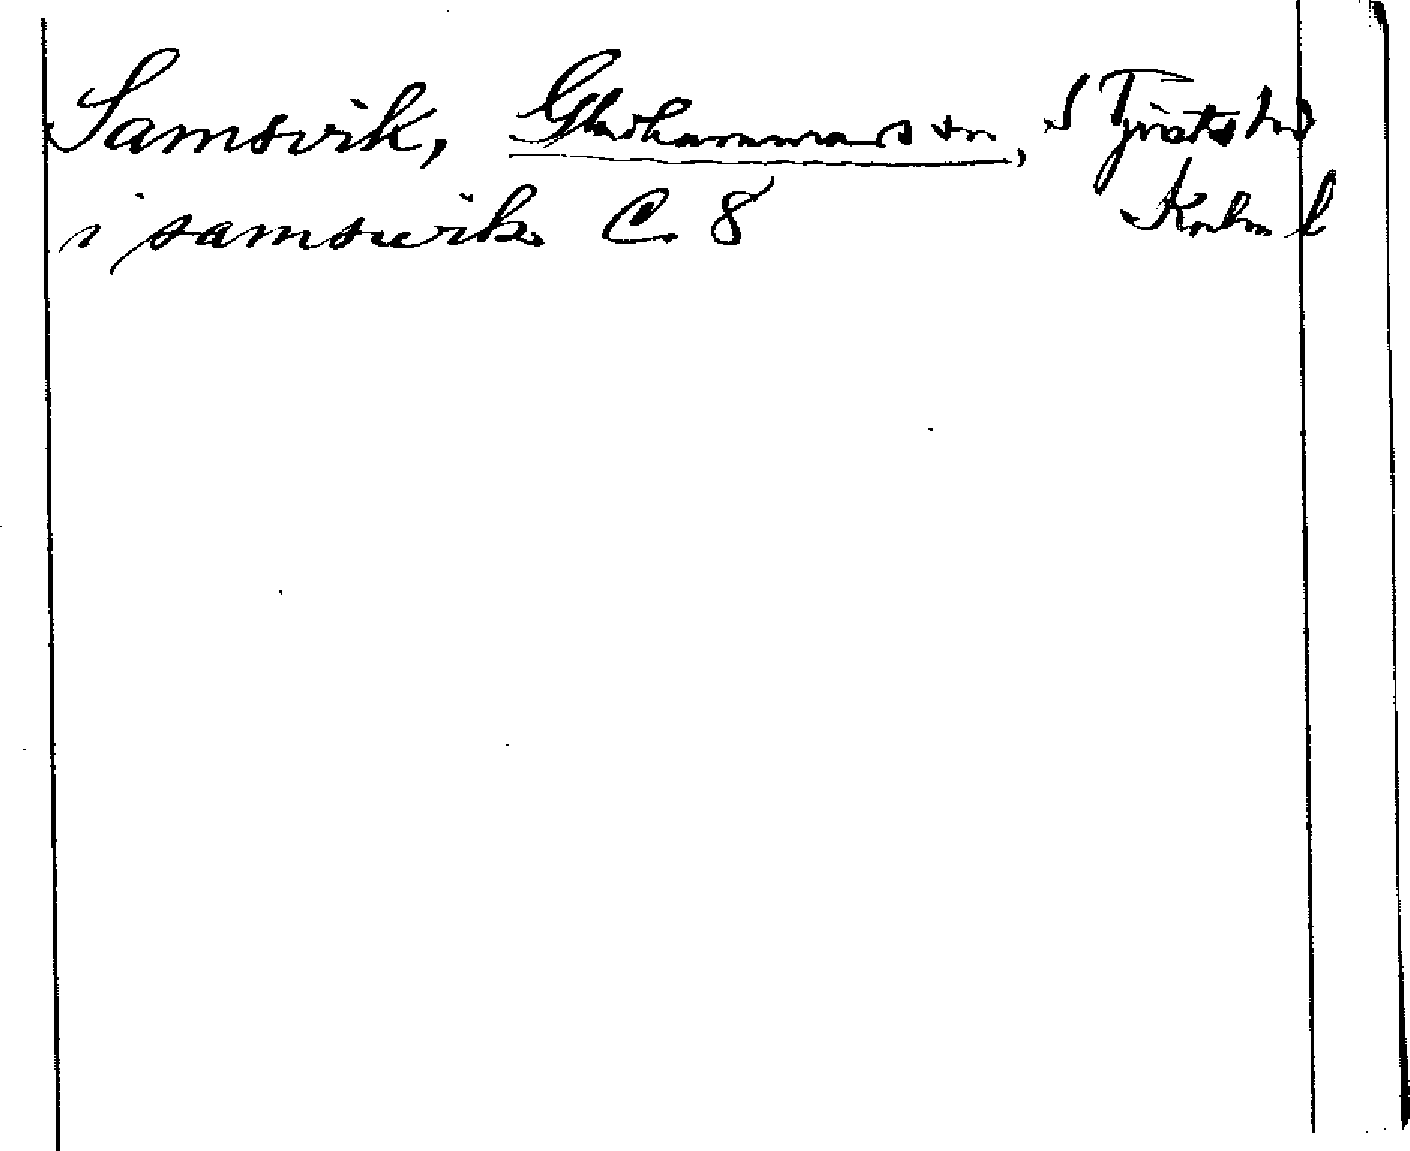 Samsvik, Gladhammars sn, S Tjusts hd
i samsuik. C. 8 Kalm. l